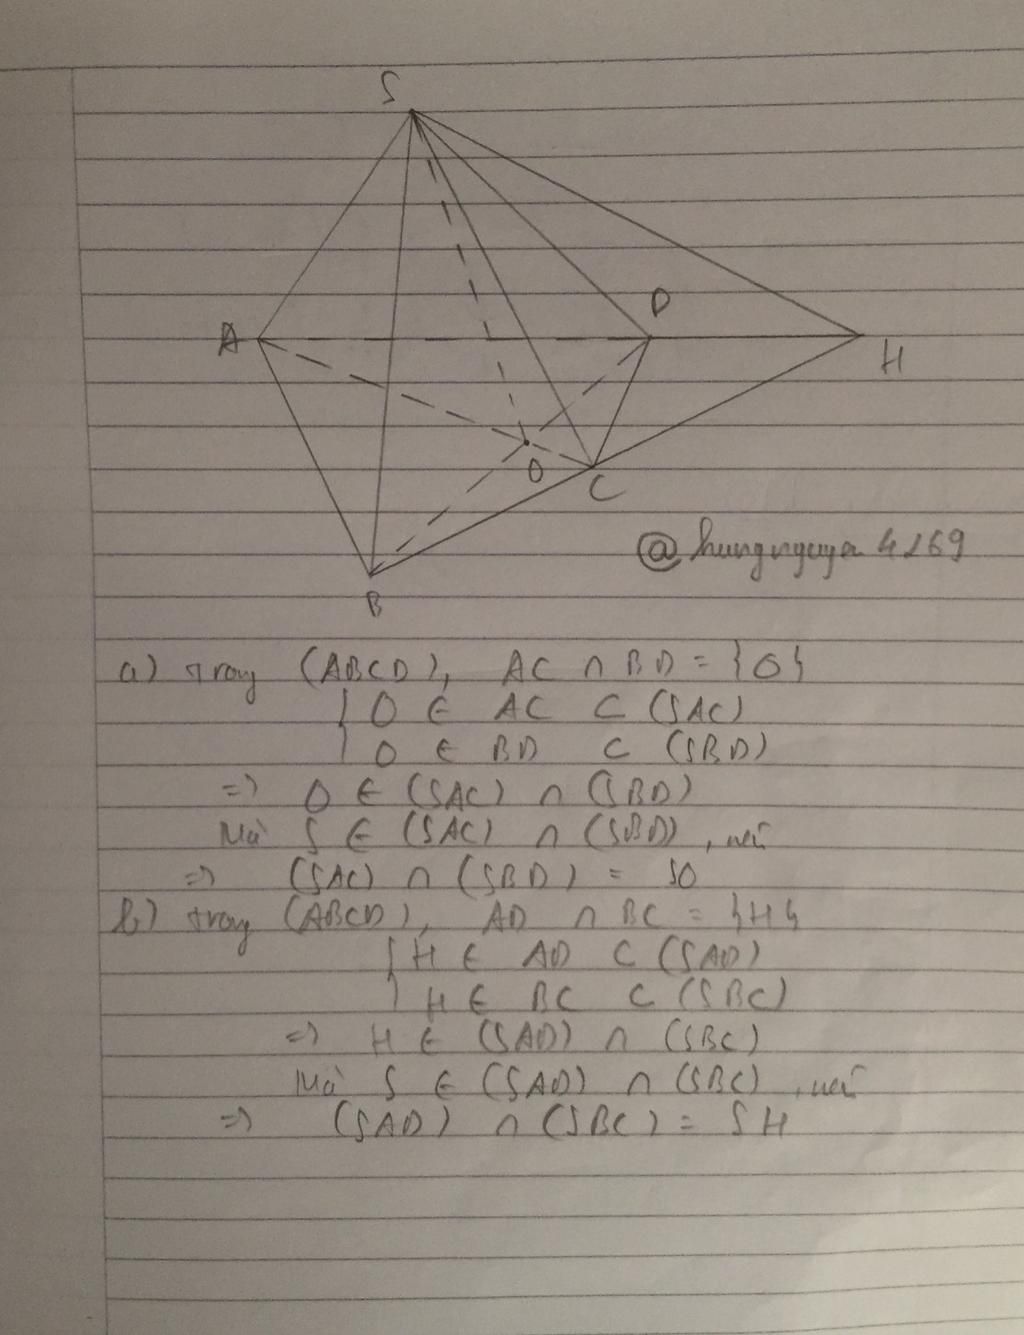 S
A
D
H
O
C
B
@hungnguyen4269
a) trong (ABCD), AC ∩ BD = {O}
{ O ∈ AC ⊂ (SAC)
O ∈ BD ⊂ (SBD)
=> O ∈ (SAC) ∩ (SBD)
Mà S ∈ (SAC) ∩ (SBD), nên
=> (SAC) ∩ (SBD) = SO
b) trong (ABCD), AD ∩ BC = {H}
{ H ∈ AD ⊂ (SAD)
H ∈ BC ⊂ (SBC)
=> H ∈ (SAD) ∩ (SBC)
Mà S ∈ (SAD) ∩ (SBC), nên
=> (SAD) ∩ (SBC) = SH